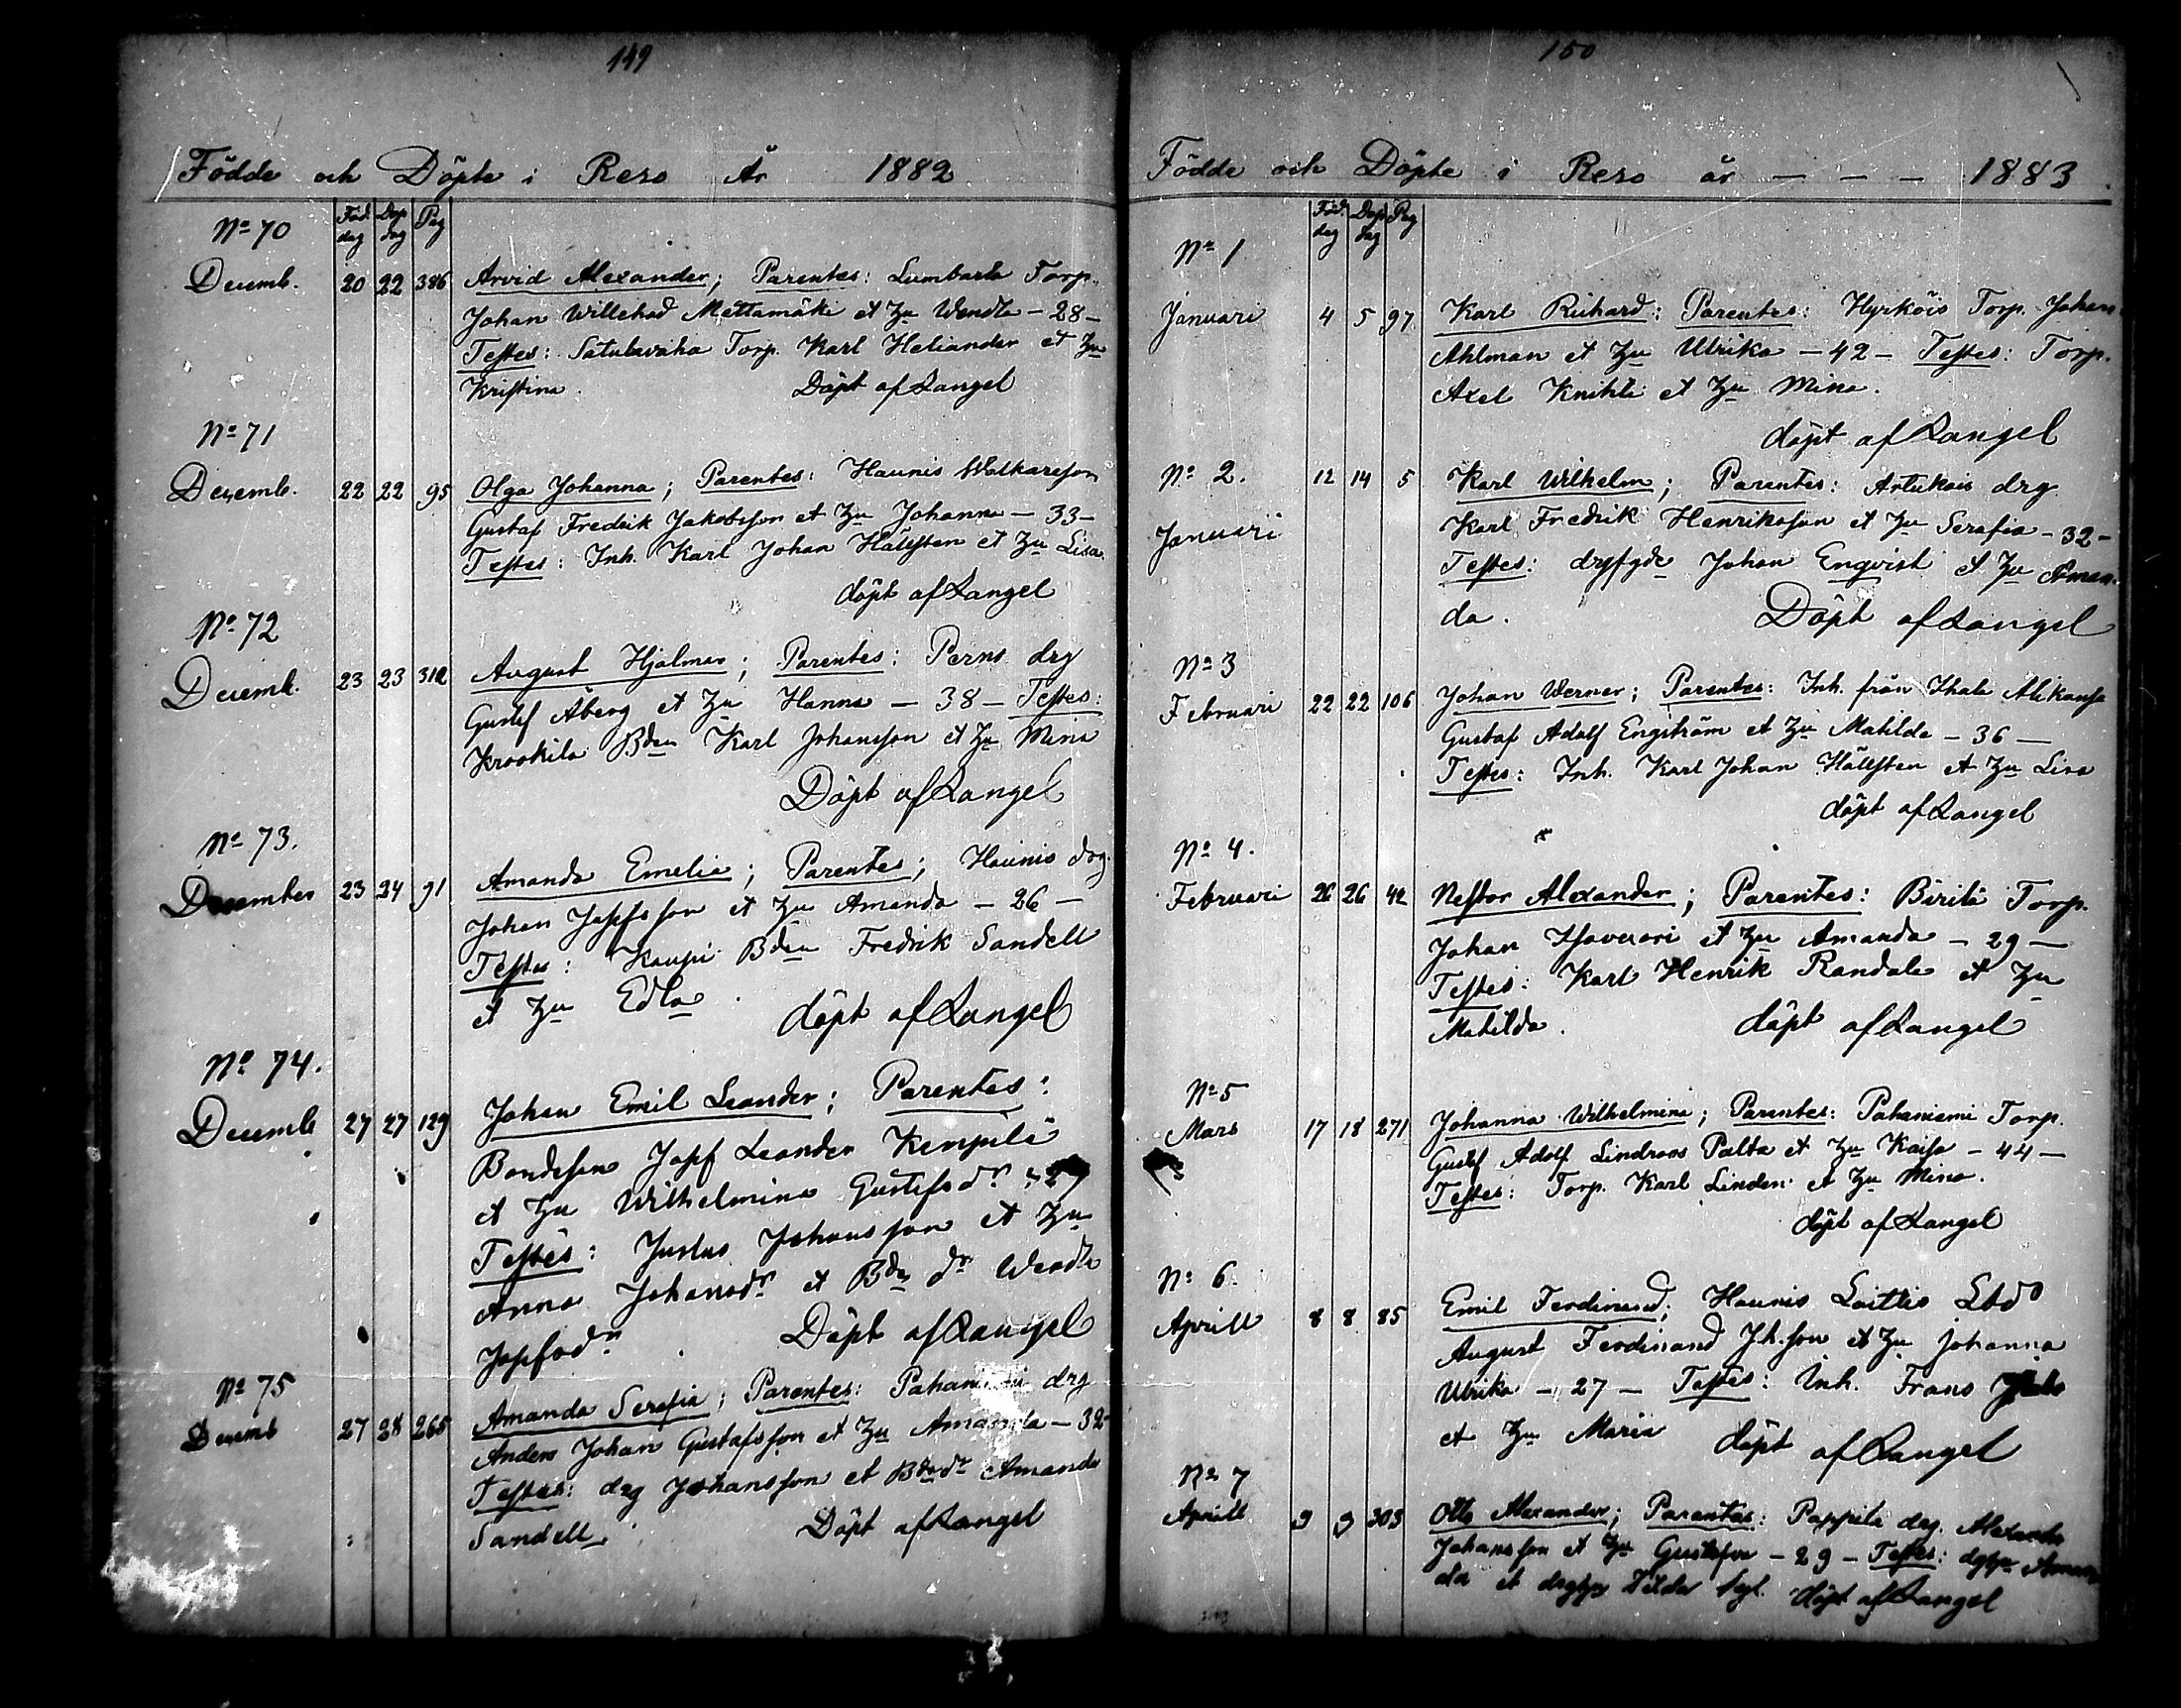 149
Födde och Döpte i Reso År 1882
Föd. dag Döp dag Pag
No 70
Decemb. 20 22 386 Arvid Alexander; Parentes: Lumbarla Torp.
Johan Willehad Mettamäki et Hu Wendla - 28 -
Testes: Satulavaha Torp. Karl Heliander et Hu
Kristina. Döpt af Langel
No 71
Decemb. 22 22 95 Olga Johanna; Parentes: Haunis
Gustaf Fredrik Jakobsson et Hu Johanna - 33 -
Testes: Inh. Karl Johan Hällsten et Hu Lisa.
döpt af Langel
No 72
Decemb. 23 23 312 August Hjalmar; Parentes: Perno drg
Gustaf Åberg et Hu Hanna - 38 - Testes:
Krookila Bden Karl Johansson et Hu Mina
Döpt af Langel
No 73.
December 23 24 91 Amanda Emelia; Parentes; Haunis drg.
Johan Josefsson et Hu Amanda - 26 -
Testes: Kaupi Bden Fredrik Sandell
et Hu Edla. döpt af Langel
No 74.
Decemb 27 27 129 Johan Emil Leander; Parentes:
Bondeson Josef Leander Kempilä
et Hu Wilhelmina Gustafsdr
Testes: Justus Johansson et Hu
Anna Johansdr et Bden dr Wendla
Josefsdr. Döpt af Langel
No 75
Decemb 27 28 265 Amanda Serafia; Parentes: drg
Anders Johan Gustafsson et Hu Amanda - 32 -
Testes: drg Johansson et Bden dr Amanda
Sandell. Döpt af Langel
150
Födde och Döpte i Reso år - - - 1883.
Föd. dag Döp dag Pag
No 1
Januari 4 5 97 Karl Rickard: Parentes: Hyrköis Torp. Johan
Ahlman et Hu Ulrika - 42 - Testes: Torp.
Axel Knihti et Hu Mina.
döpt af Langel
No 2. 12 14 5 Karl Wilhelm; Parentes: Artukais drg
Januari Karl Fredrik Henriksson et Hu Serafia - 32 -
Testes: Johan Enqvist et Hu Aman-
da. Döpt af Langel
No 3
Februari 22 22 106 Johan Werner; Parentes: Inh. från Ihala
Gustaf Adolf Engström et Hu Matilda - 36 -
Testes: Inh. Karl Johan Hällsten et Hu Lisa
döpt af Langel
No 4.
Februari 26 26 42 Nestor Alexander; Parentes: Birilä Torp.
Johan et Hu Amanda - 29 -
Testes: Karl Henrik Randala et Hu
Matilda. döpt af Langel
No 5
Mars 17 18 271 Johanna Wilhelmina; Parentes: Pahaniemi Torp.
Gustaf Adolf Lindroos Palta et Hu Kaisa - 44 -
Testes: Torp. Karl Linden et Hu Mina.
döpt af Langel
No 6.
Aprill 8 8 85 Emil Ferdinand; Haunis
August Ferdinand Joh.son et Hu Johanna
Ulrika - 27 - Testes: Inh. Frans
et Hu Maria döpt af Langel
No 7
Aprill 9 9 303 Otto Alexander; Parentes: Pappila drg. Alexander
Johansson et Hu Gustafva - 29 - Testes: Aman-
da et Hilda döpt af Langel